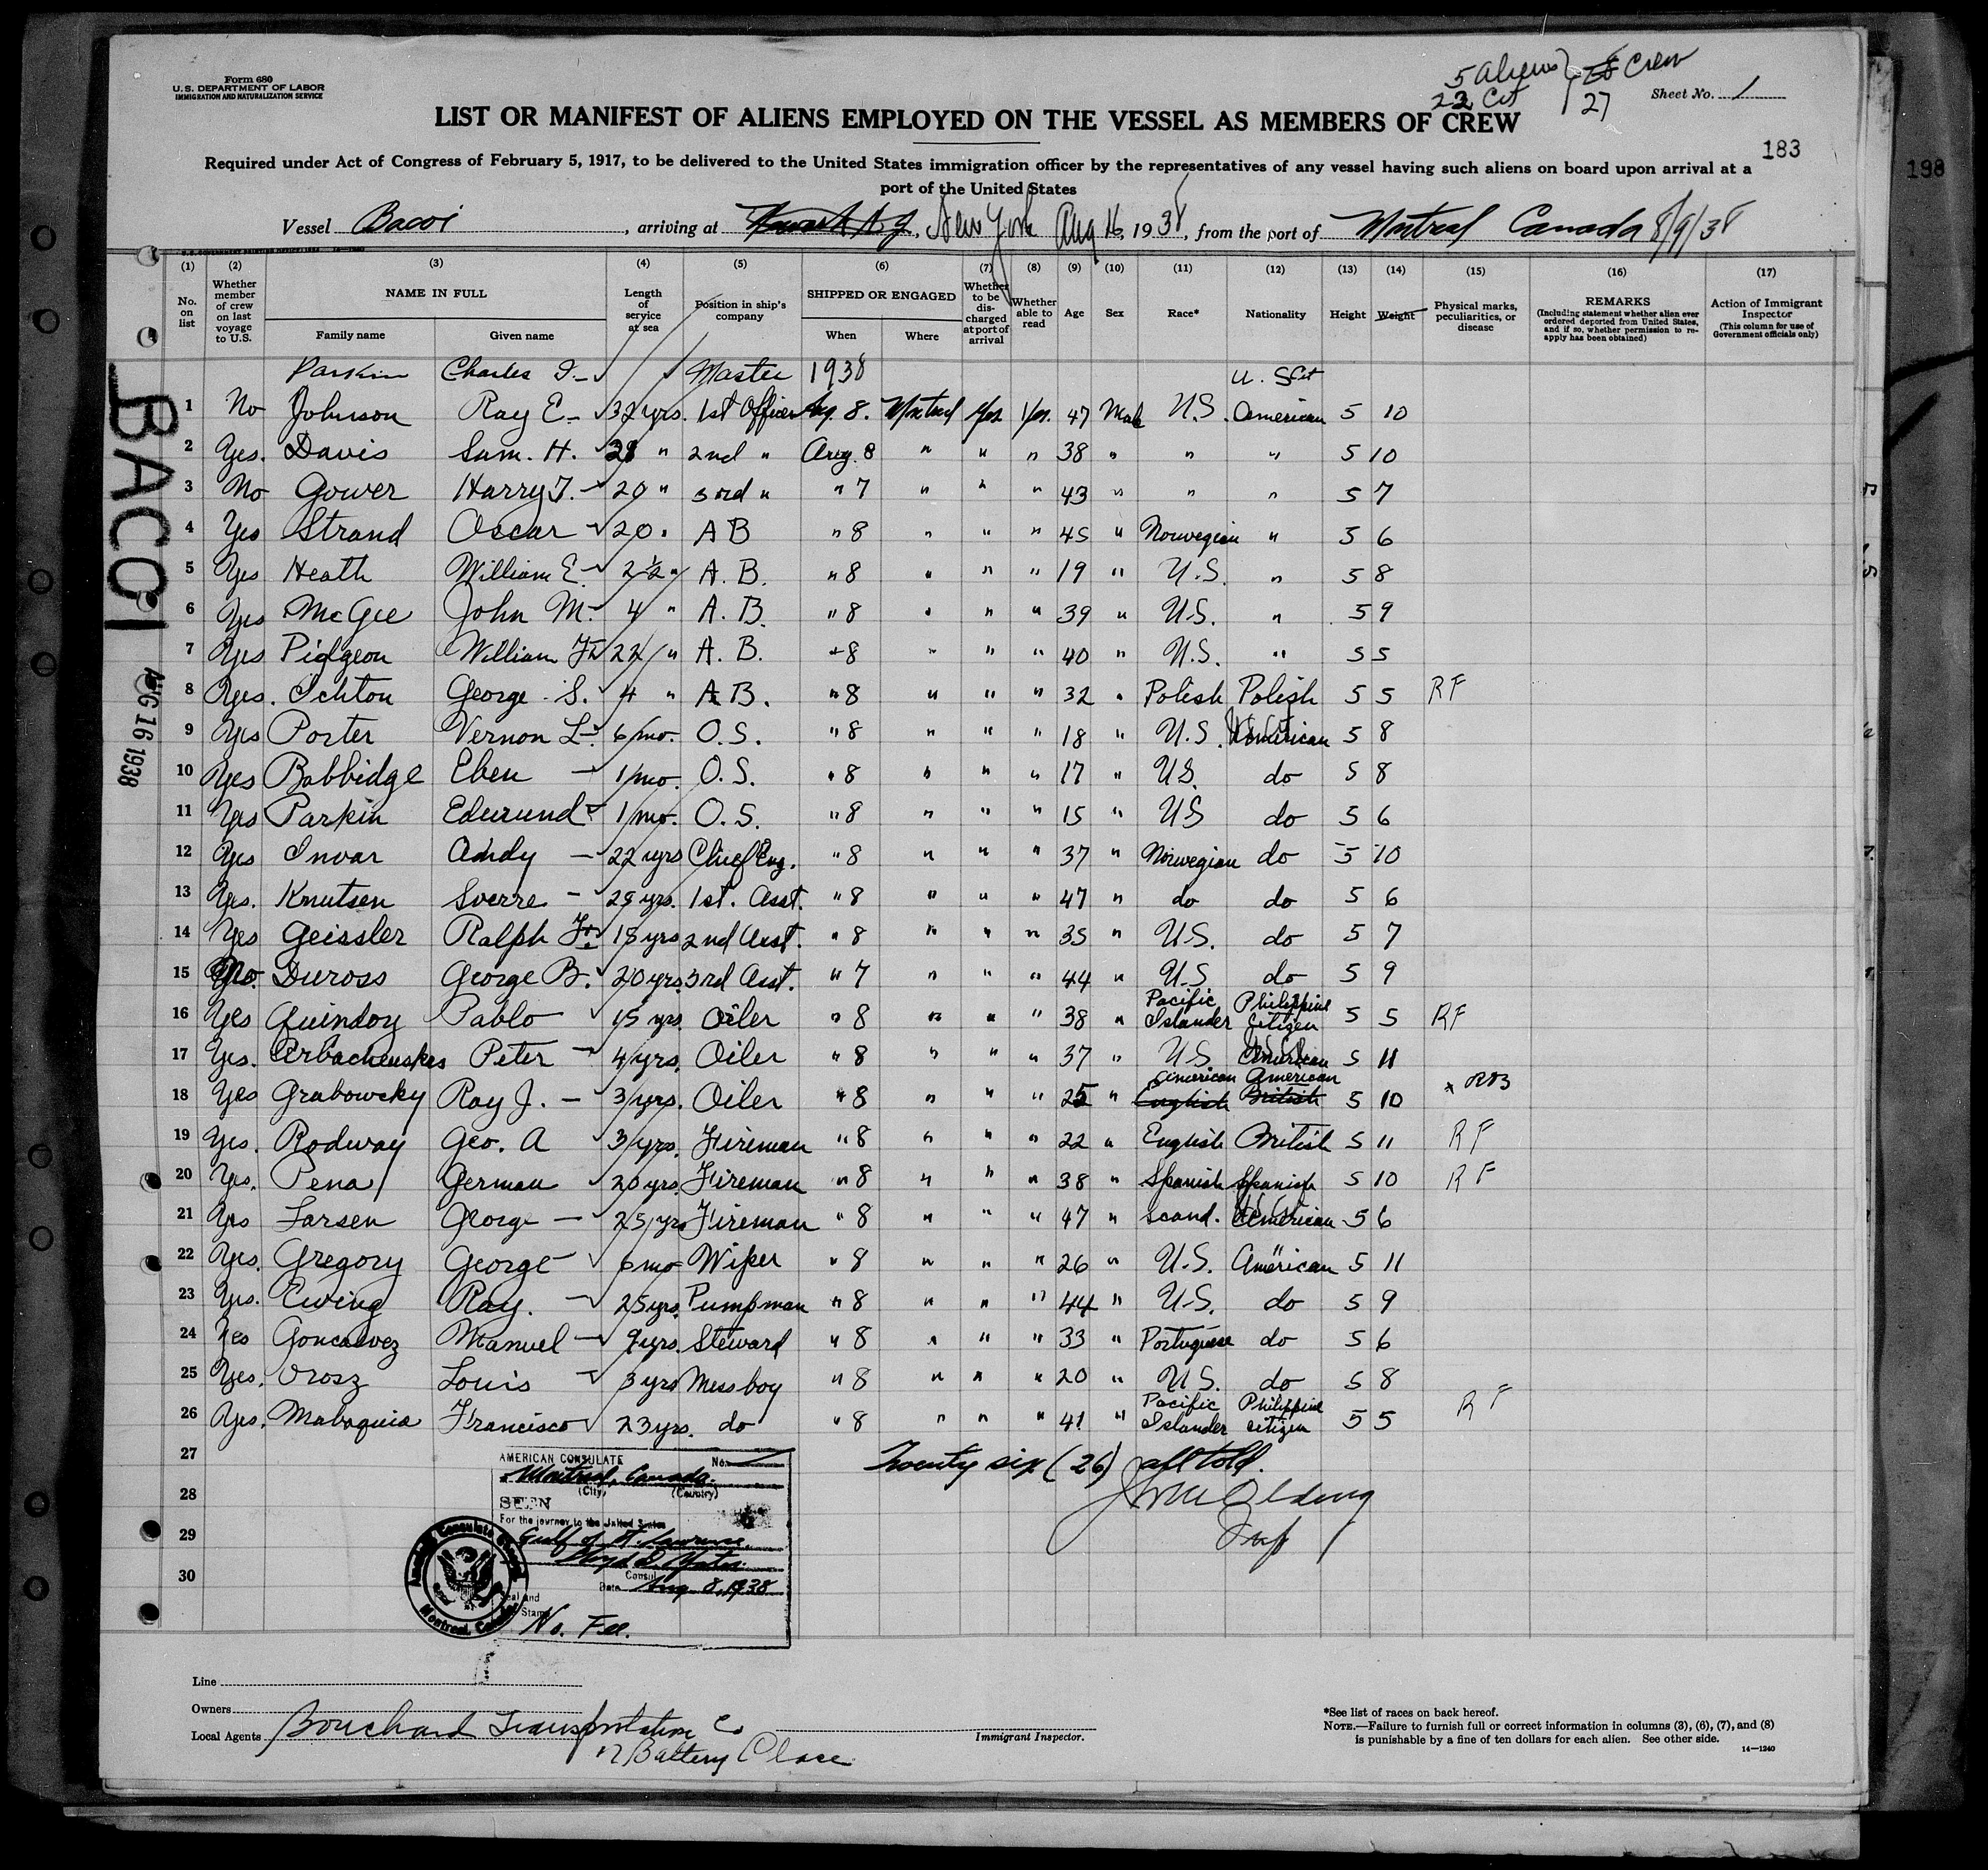 Form 680
U.S. DEPARTMENT OF LABOR
IMMIGRATION AND NATURALIZATION SERVICE
5 Aliens
22 Cit
Crew
27
Sheet No. 1
LIST OR MANIFEST OF ALIENS EMPLOYED ON THE VESSEL AS MEMBERS OF CREW
183
198
Required under Act of Congress of February 5, 1917, to be delivered to the United States immigration officer by the representatives of any vessel having such aliens on board upon arrival at a
port of the United States
Vessel Bacoi, arriving at Newark N.J., New York Aug 16, 1938, from the port of Montreal Canada 8/9/38
(1) (2) (3) (4) (5) (6) (7) (8) (9) (10) (11) (12) (13) (14) (15) (16) (17)
No. on list
Whether member of crew on last voyage to U.S.
NAME IN FULL
Family name Given name
Length of service at sea
Position in ship's company
SHIPPED OR ENGAGED
When Where
Whether to be discharged at port of arrival
Whether able to read
Age
Sex
Race*
Nationality
Height
Weight
Physical marks, peculiarities, or disease
REMARKS
(Including statement whether alien ever ordered deported from United States, and if so, whether permission to reapply has been obtained)
Action of Immigrant Inspector
(This column for use of Government officials only)
Parkin Charles Master 1938 U. S Cit
1 No Johnson Ray E. 32 yrs. 1st Officer Aug. 8. Montreal Yes Yes. 47 Male U.S. American 5 10
2 Yes. Davis Sam. H. 28 " 2nd " Aug. 8 " " " 38 " " " 5 10
3 No Gower Harry T. 20 " 3rd " " 7 " " " 43 " " " 5 7
4 Yes Strand Oscar 20 " A B " 8 " " " 45 " Norwegian " 5 6
5 Yes Heath William E. 2 1/2 " A. B. " 8 " " " 19 " U.S. " 5 8
6 Yes McGee John M. 4 " A. B. " 8 " " " 39 " U.S. " 5 9
7 Yes Pidgeon William 22 " A. B. " 8 " " " 40 " U.S. " 5 5
8 Yes. Ichton George S. 4 " A B. " 8 " " " 32 " Polish Polish 5 5 RF
9 Yes Porter Vernon L. 6/mo. O.S. " 8 " " " 18 " U.S. American 5 8
10 Yes Babbidge Eben 1/mo. O.S. " 8 " " " 17 " U.S. do 5 8
11 Yes Parkin Edmund 1/mo. O.S. " 8 " " " 15 " US do 5 6
12 Yes Invar Andy 22 yrs Chief Eng. " 8 " " " 37 " Norwegian do 5 10
13 Yes. Knutsen Sverre 29 yrs. 1st. Asst. " 8 " " " 47 " do do 5 6
14 Yes Geissler Ralph 15 yrs 2nd Asst. " 8 " " " 35 " U.S. do 5 7
15 No. Duross George B. 20 yrs. 3rd Asst. " 7 " " " 44 " U.S do 5 9
16 Yes Quindoy Pablo 15 yrs. Oiler " 8 " " " 38 " Pacific Islander Philippine Citizen 5 5 RF
17 Yes. Arbachouskes Peter 4 yrs. Oiler " 8 " " " 37 " U.S American 5 11
18 Yes Grabowsky Ray J. 3/yrs. Oiler " 8 " " " 25 " American English American British 5 10
19 Yes. Rodway Geo. A 3/yrs. Fireman " 8 " " " 22 " English British 5 11 RF
20 Yes. Pena German 20 yrs. Fireman " 8 " " " 38 " Spanish Spanish 5 10 RF
21 Yes Larsen George 25/yrs Fireman " 8 " " " 47 " Scand. American 5 6
22 Yes. Gregory George 6 mo Wiper " 8 " " " 26 " U.S. American 5 11
23 Yes. Ewing Ray. 25 yrs. Pumpman " 8 " " " 44 " U.S. do 5 9
24 Yes Goncalvez Manuel 9 yrs. Steward " 8 " " " 33 " Portuguese do 5 6
25 Yes. Orosz Louis 3 yrs Messboy " 8 " " " 20 " U.S. do 5 8
26 Yes. Mabaquia Francisco 23 yrs. do " 8 " " " 41 " Pacific Islander Philippine citizen 5 5 RF
27
28
29
30
Twenty six (26) all told.
BACOI
AUG 16 1938
AMERICAN CONSULATE No.
Montreal, Canada.
(City) (Country)
SEEN
For the journey to the United States
Gulf of St. Lawrence
Consul
Date Aug 8, 1938
Seal and Stamp
No. Fee.
Line
Owners
Local Agents Bouchard Transportation Co
17 Battery Place
Immigrant Inspector.
*See list of races on back hereof.
NOTE.—Failure to furnish full or correct information in columns (3), (6), (7), and (8)
is punishable by a fine of ten dollars for each alien. See other side.
14—1240